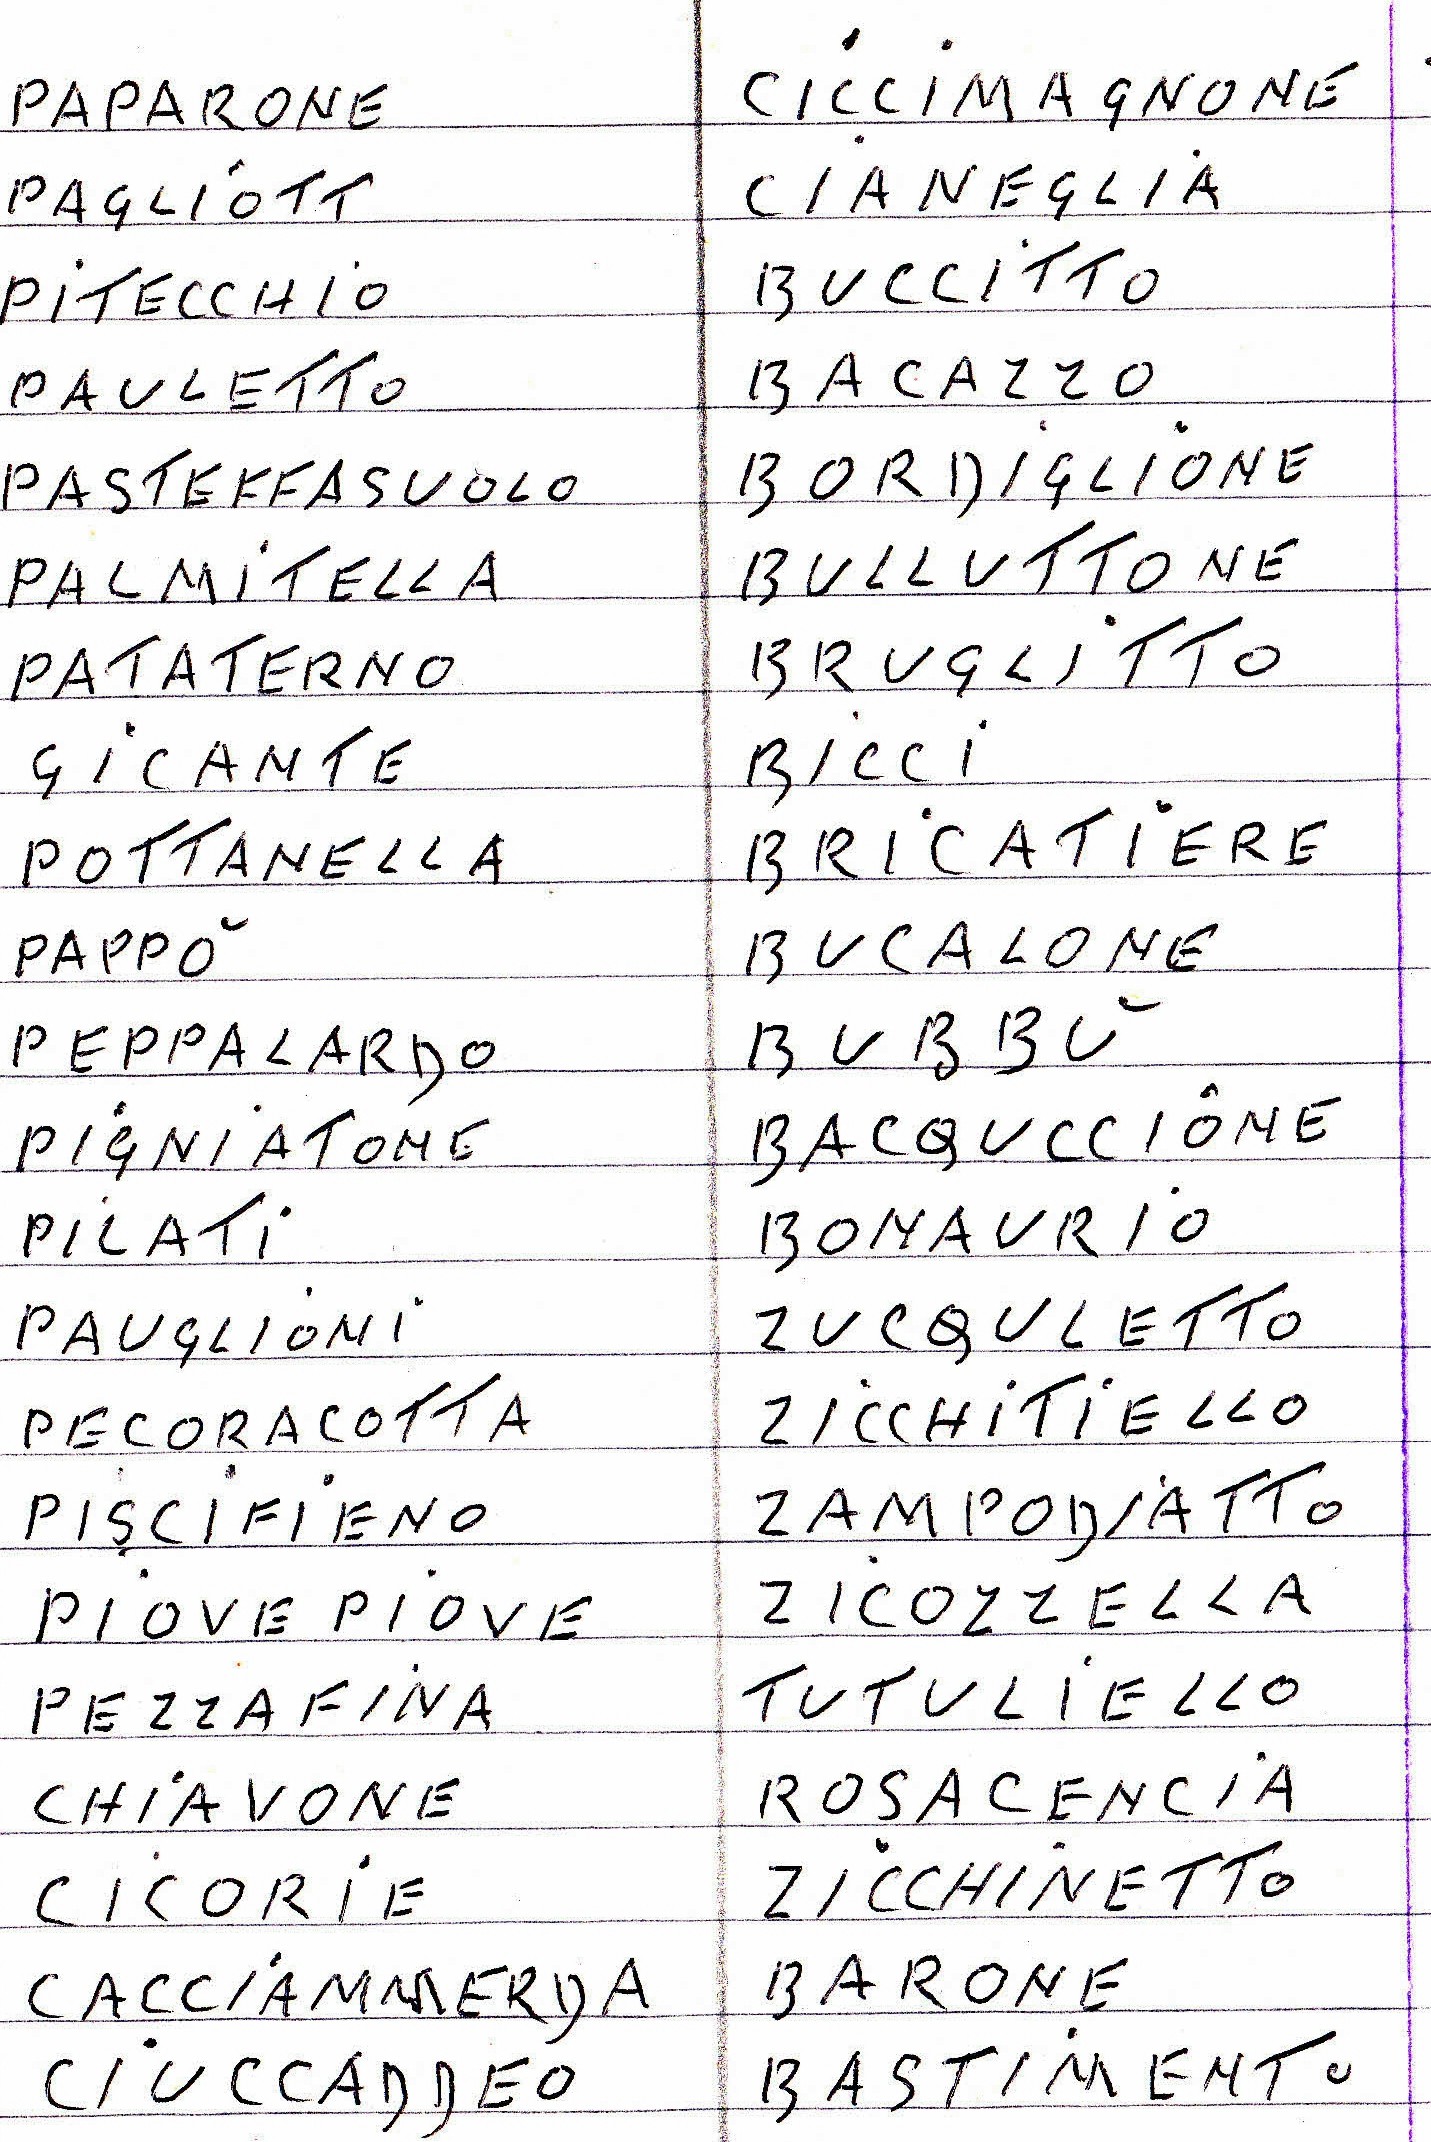 PAPARONE
PAGLIOTT
PITECCHIO
PAULETTO
PASTEFFASUOLO
PALMITELLA
PATATERNO
GICANTE
POTTANELLA
PAPPŎ
PEPPALARDO
PIGNIATONE
PILATI
PAUGLIONI
PECORACOTTA
PISCIFIENO
PIOVE PIOVE
PEZZAFINA
CHIAVONE
CICORIE
CACCIAMMERDA
CIUCCADDEO
CICCIMAGNONE
CIANEGLIA
BUCCITTO
BACAZZO
BORDIGLIONE
BULLUTTONE
BRUGLITTO
BICCI
BRICATIERE
BUCALONE
BUBBŬ
BACQUCCIONE
BONAURIO
ZUCQULETTO
ZICCHITIELLO
ZAMPODIATTO
ZICOZZELLA
TUTULIELLO
ROSACENCIA
ZICCHINETTO
BARONE
BASTIMENTO